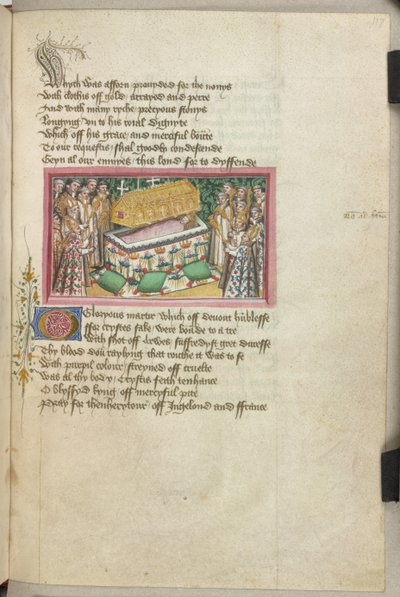 Whych was afforn prouyded for the nonys
With clothis off gold arrayed and perre
And with many ryche precyous stonys
Longyng vn to his roial dignyte
Which off his grace and merciful bounte
To our requestys shal goodly condescende
Geyn al our enmyes this lond for to dyffende
O Gloryous martir which off devout humblesse
ffor crystes sake were bounde to a tre
With shot off arwes suffredyst gret duresse
Thy blood doun raylyng that routhe it was to se
With purpil colour steyned off cruelte
Was al thy body Crystus feith tenhance
O blyssyd kyng off mercyful pite
Pray for thenherytour off Ingelond and ffrance